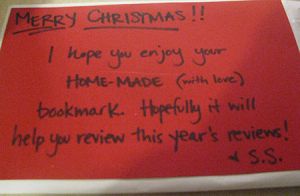 MERRY CHRISTMAS!!
I hope you enjoy your
HOME-MADE (with love)
bookmark. Hopefully it will
help you review this year's reviews!
S.S.